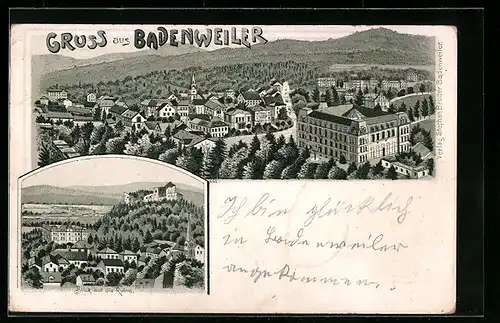 GRUSS AUS BADENWEILER
Verlag Stephan Bruder Badenweiler.
Blick auf die Ruine.
Ich bin glücklich
in Badenweiler
angekommen.